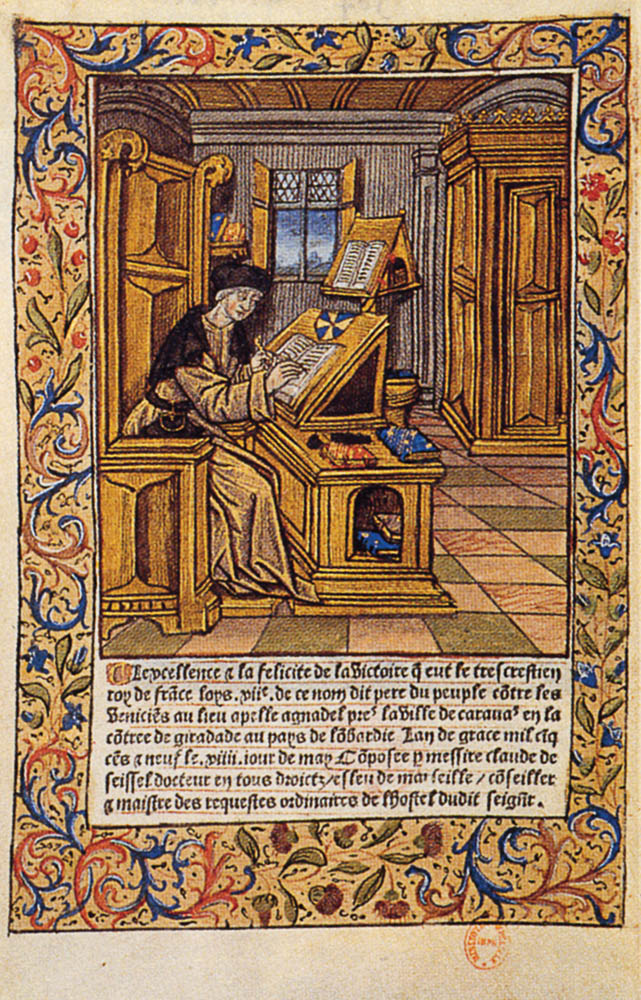 Lexcellence ⁊ la felicite de la victoire q̃ eut le trescrestien
roy de frãce loys. xiiᵉ. de ce nom dit pere du peuple cõtre les
Veniciẽs au lieu apelle agnadel presˢ la ville de caravasˢ en la
cõtree de giradade au pays de lõbardie Lan de grace mil cĩq
cẽs ⁊ neuf le. xiiii. iour de may Cõposee p messire claude de
seissel docteur en tous droictz/esleu de marseille/cõseiller
⁊ maistre des requestes ordinaires de lhostel dudit seignr̃.